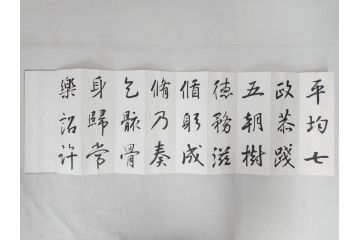 平均七
政恭踐
五朝樹
德務滋
脩躬成
脩乃奏
乞骸骨
身歸常
樂詔許